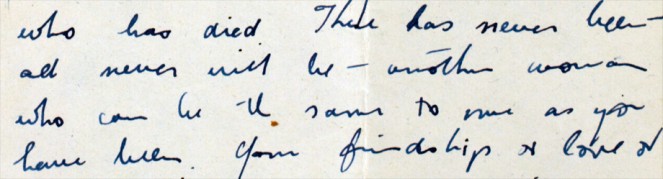 who has died. There has never been –
ad never will be – another woman
who can be the same to me as you
have been. Your friendship & love &